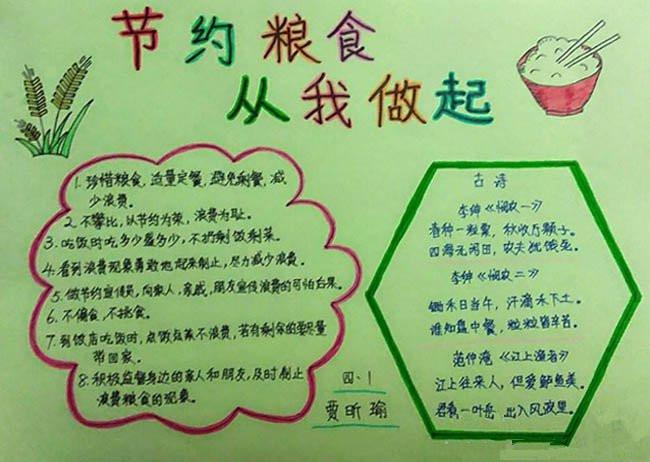 节约粮食
从我做起
1. 珍惜粮食,适量定餐,避免剩餐,减
少浪费。
2. 不攀比,以节约为荣,浪费为耻。
3. 吃饭时吃多少盛多少,不扔剩饭剩菜。
4. 看到浪费现象勇敢地起来制止,尽力减少浪费。
5. 做节约宣传员,向家人,亲戚,朋友宣传浪费的可怕后果。
6. 不偏食,不挑食。
7. 到饭店吃饭时,点饭点菜不浪费,若有剩余的要尽量
带回家。
8. 积极监督身边的亲人和朋友,及时制止
浪费粮食的现象。
四、1
贾昕瑜
古诗
李绅《悯农一》
春种一粒粟,秋收万颗子。
四海无闲田,农夫犹饿死。
李绅《悯农二》
锄禾日当午,汗滴禾下土。
谁知盘中餐,粒粒皆辛苦。
范仲淹《江上渔者》
江上往来人,但爱鲈鱼美。
君看一叶岳 出入风波里。